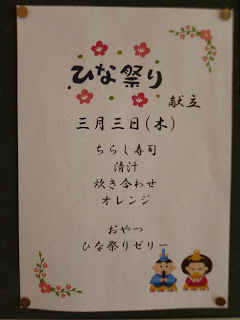 ひな祭り
献立
三月三日(木)
ちらし寿司
清汁
炊き合わせ
オレンジ
おやつ
ひな祭りゼリー